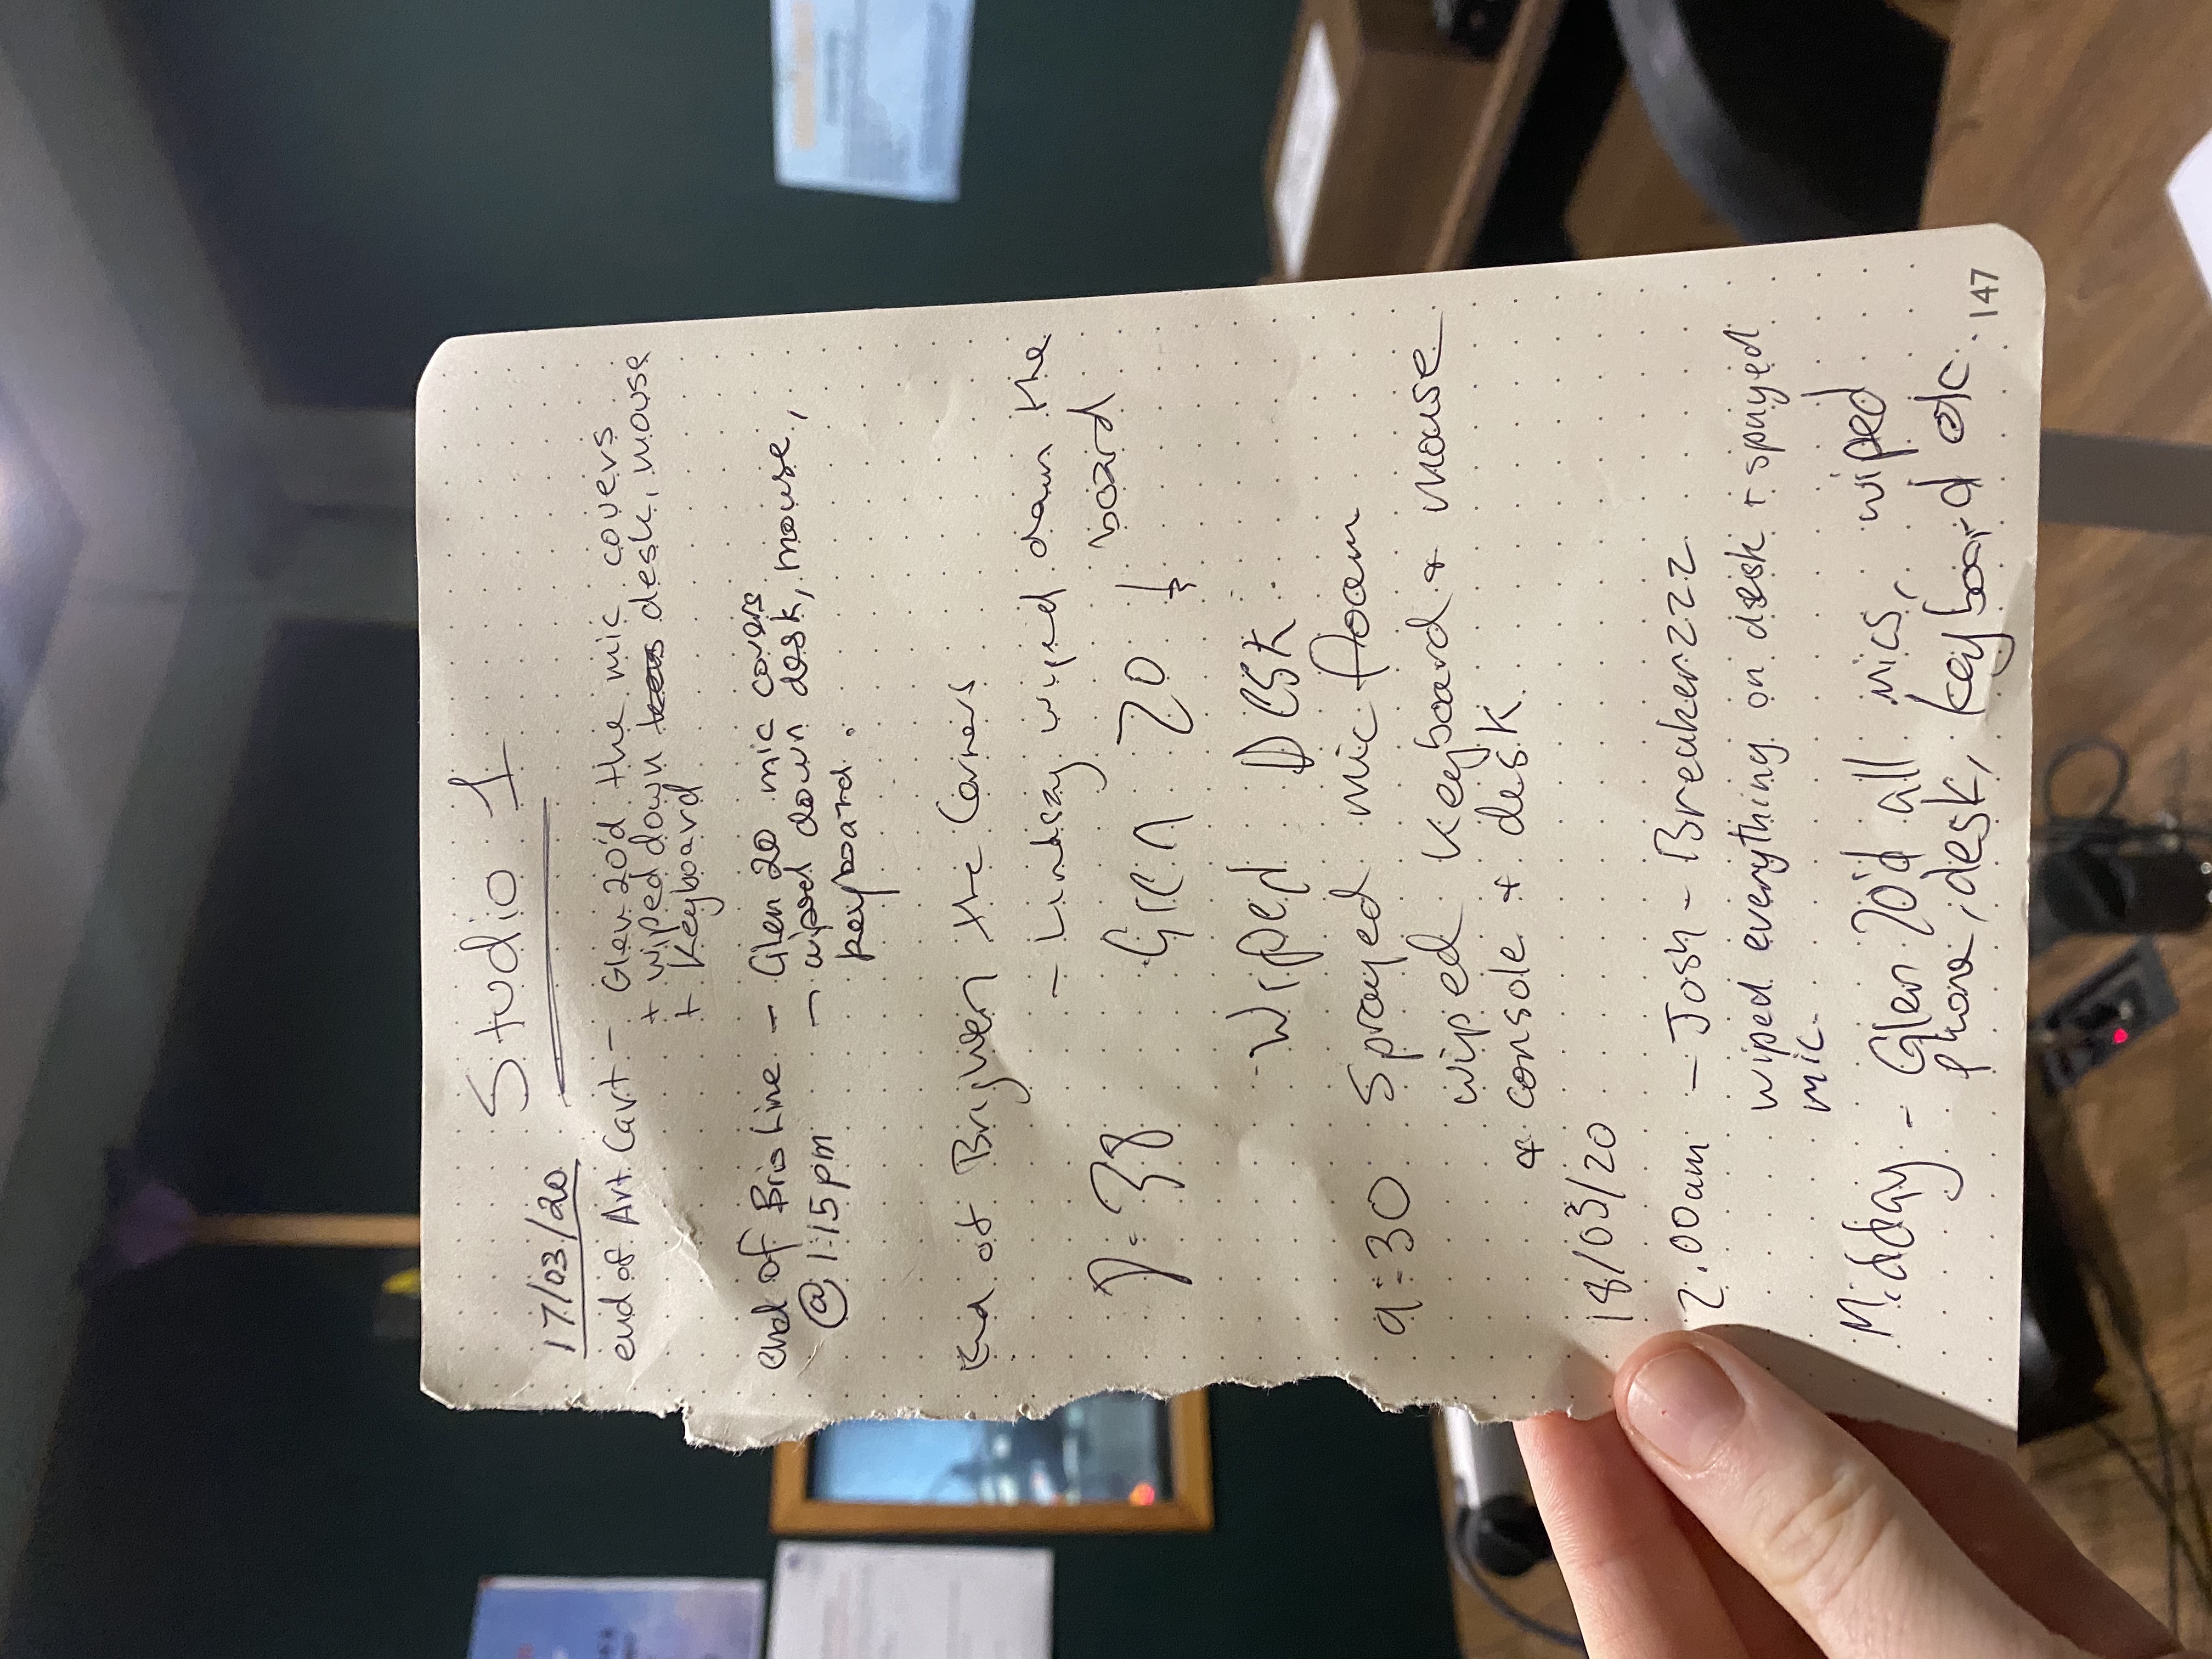 Studio 1
17/03/20
end of Art Cart - Glen 20'd the mic covers
+ wiped down desk, mouse
+ keyboard
end of BrisLine - Glen 20 mic covers
@ 1:15pm - wiped down desk, mouse,
keyboard.
End of Brighten the Corners
- Lindsay wiped down the
board
7:38 Glen 20
- Wiped Desk
9:30 Sprayed mic foam
wiped keyboard & mouse
& console + desk
18/03/20
2.00am - Josh - Breakerzzz
wiped everything on desk + sprayed
mic.
Midday - Glen 20'd all mics, wiped
phone, desk, keyboard etc.
147